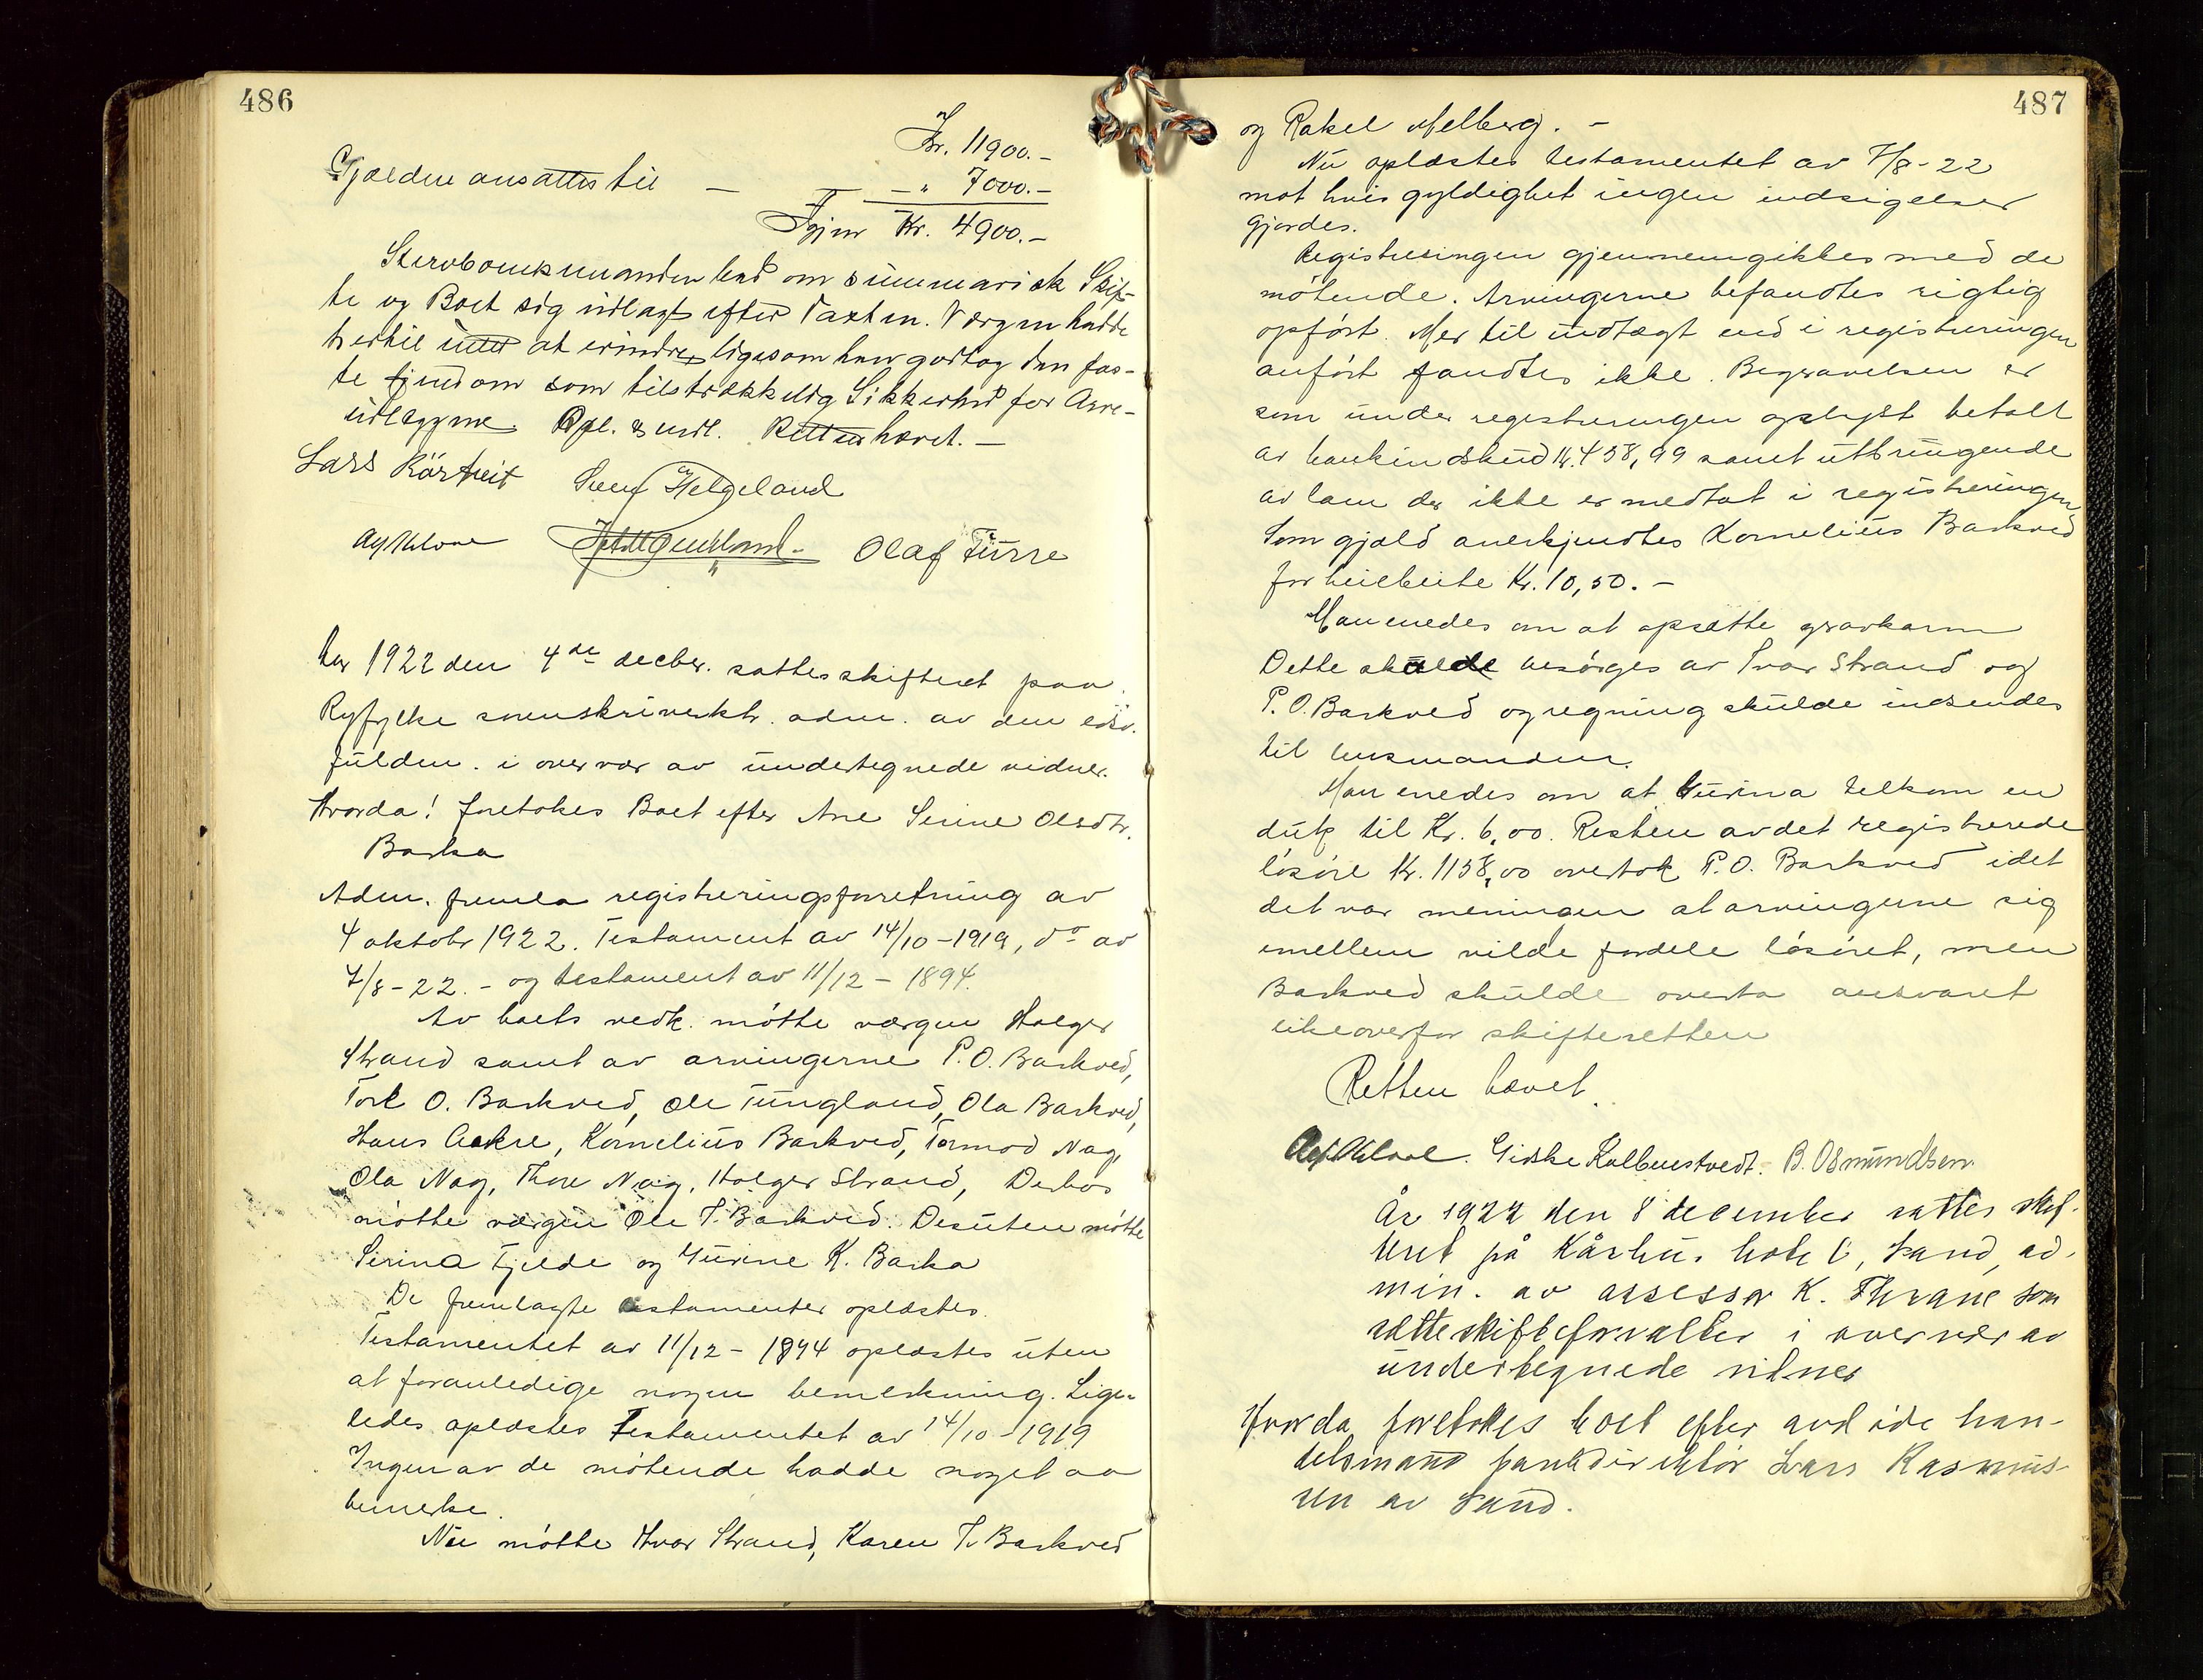 486
Kr. 11900.-
Gjælden ansattes til — — " 7000.-
Igjen Kr. 4900.-
Stervboenkemanden bad om summarisk Skif-
te og Boet sig udlagt efter Taxten. Værgen hadde
hertil intet at erindre, ligesom han godtog den fas-
te Eiendom som tilstrækkelig Sikkerhed for Arve-
udlæggene. Opl. & vedt. Retten hævet. —
Lars
Helgeland
Olaf Furre
Aar 1922 den 4de decbr. sattes skifteret paa
Ryfylke sorenskriverktr. adm. av den edsv.
fuldm. i overvær av undertegnede vidner.
Hvorda! foretokes Boet efter Ane Serine Olsdtr.
Barka
Adm. fremla registreringsforretning av
4 oktobr 1922. Testament av 14/10-1919, do av
7/8-22.- og testament av 11/12-1894.
Av boets vedk. møtte værgen Holger
Strand samt av arvingerne P. O. Barkved,
Tore O. Barkved, Ole Tungland, Ola Barkved,
Hans Aakre, Kornelius Barkved, Tormod Nag,
Ola Nag, Thore Nag, Holger Strand, Derhos
møtte værgen Ole T. Barkved. Desuten møtte
Serina Fjelde og Gurine K. Barka
De fremlagte testamenter oplæstes.
Testamentet av 11/12-1894 oplæstes uten
at foranledige nogen bemerkning. Lige-
ledes oplæstes Testamentet av 14/10-1919
Ingen av de møtende hadde noget aa
bemerke.
Nu møtte Ivar Strand, Karen T. Barkved
487
og Rakel Melberg. -
Nu oplæstes testamentet av 7/8-22
mot hvis gyldighet ingen indsigelser
gjordes.
Registreringen gjennemgikkes med de
møtende. Arvingerne befandtes rigtig
opført. Mer til indtægt end i registreringen
anført fandtes ikke. Begravelsen er
som under registreringen oplyst betalt
av bankindskud kr. 458,99 samt utbringende
av lam der ikke er medtat i registreringen
Som gjæld anerkjendtes Kornelius Barkved
for Kr. 10,50. -
Man enedes om at opsætte gravkarm
Dette skulde besørges av Ivar Strand og
P. O. Barkved og regning skulde indsendes
til lensmanden.
Man enedes om at Gurina tilkom en
duk til Kr. 6,00. Resten av det registrerede
løsøre Kr. 1158,00 overtok P. O. Barkved idet
det var meningen at arvingerne sig
imellem vilde fordele løsøret, men
Barkved skulde overta ansvaret
likeoverfor skifteretten
Retten hævet.
Giske Kolbenstvedt. B. Osmundsen.
År 1922 den 8 december sattes skif-
teret på Kårhus hotel, Sand, ad-
min. av assessor K. Thrane som
sætteskifteforvalter i overvær av
undertegnede vidner
Hvorda foretokes boet efter avd̄ide han-
delsmand bankdirektør Lars Rasmus-
sen av Sand.